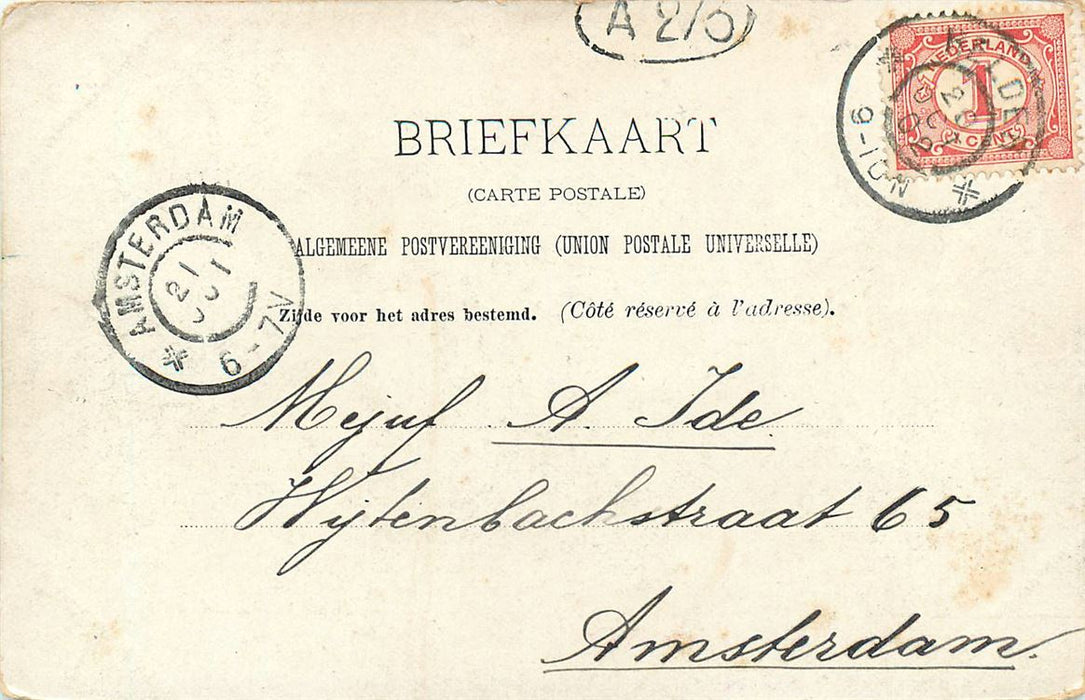 A 2/3
NEDERLAND
1
CENT
9-10N
BRIEFKAART
(CARTE POSTALE)
ALGEMEENE POSTVEREENIGING (UNION POSTALE UNIVERSELLE)
Zijde voor het adres bestemd. (Côté réservé à l'adresse).
AMSTERDAM
21
6-7V
Mejuf A. Ide
Wijtenbachstraat 65
Amsterdam.